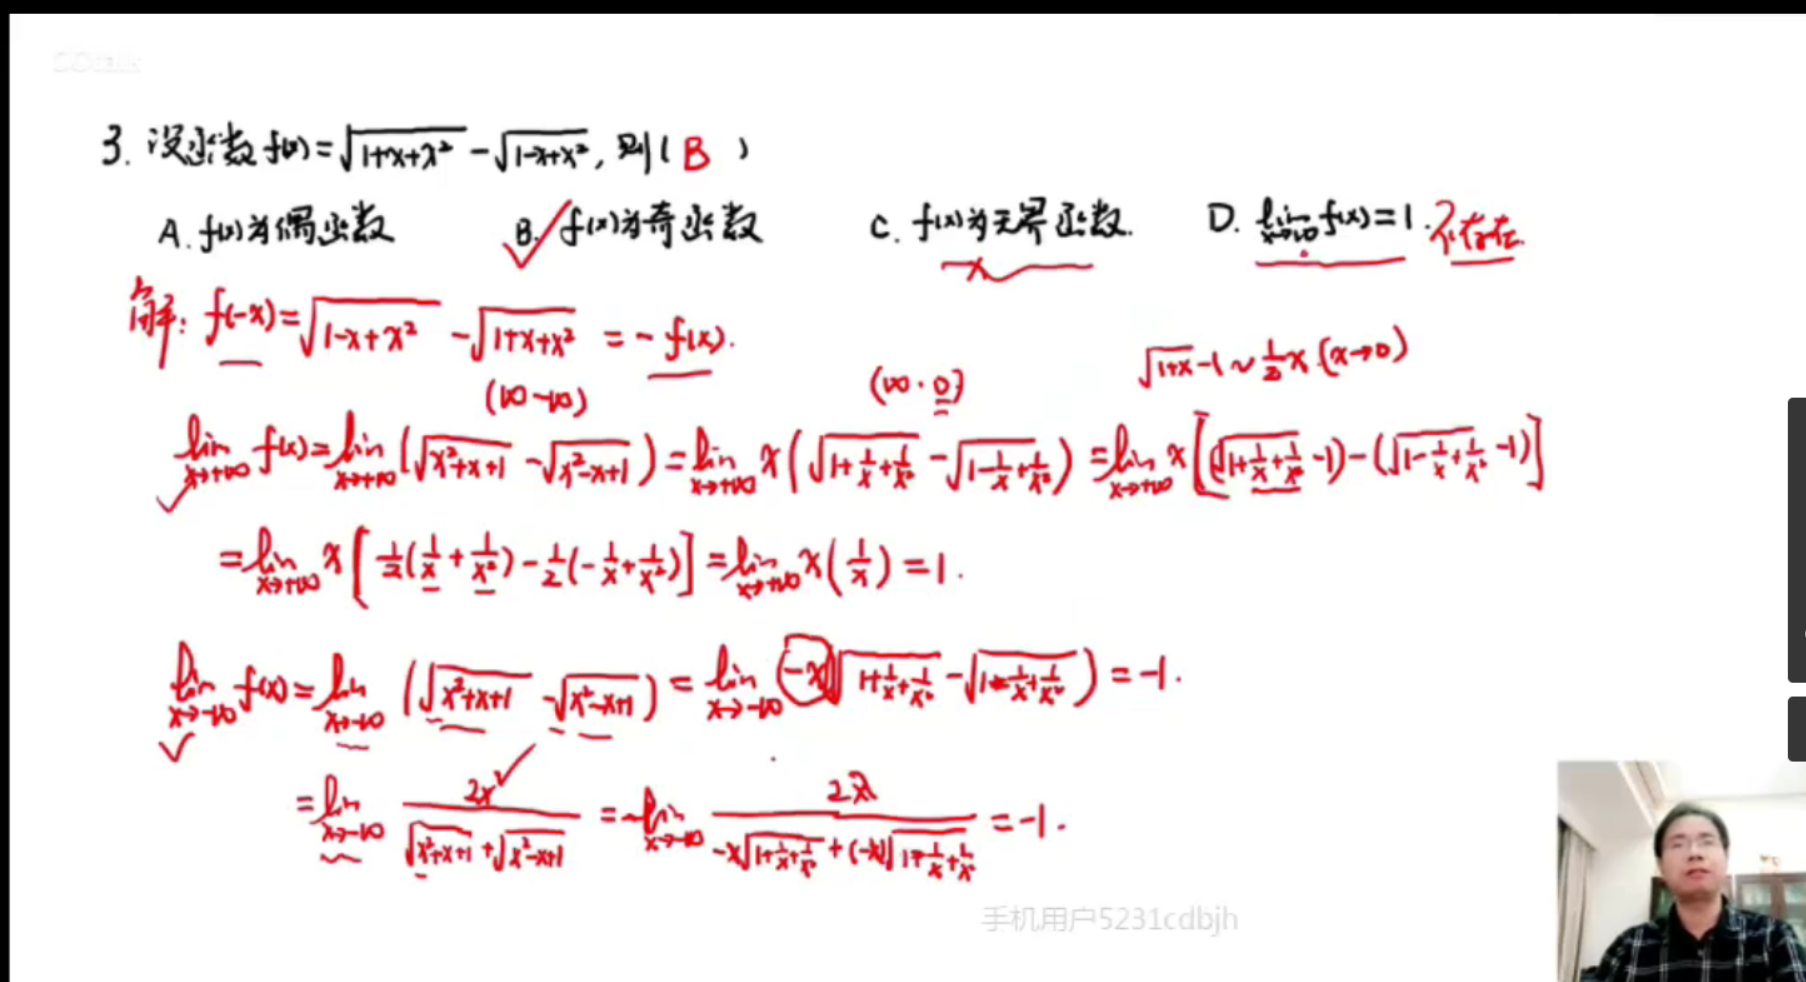 3. 设函数f(x)=√(1+x+x²) -√(1-x+x²), 则( B )
A. f(x)为偶函数 B. f(x)为奇函数 C. f(x)为无界函数. D. lim_{x→∞} f(x)=1. 不存在.
解: f(-x)=√(1-x+x²) -√(1+x+x²) = - f(x).
√(1+x) -1 ~ ½x (x→0)
(∞-∞) (∞·0)
lim_{x→+∞} f(x)=lim_{x→+∞} (√(x²+x+1) -√(x²-x+1)) = lim_{x→+∞} x(√(1+1/x+1/x²) -√(1-1/x+1/x²)) = lim_{x→+∞} x[(√(1+1/x+1/x²) -1)-(√(1-1/x+1/x²) -1)]
=lim_{x→+∞} x[½(1/x+1/x²)-½(-1/x+1/x²)] =lim_{x→+∞} x(1/x) =1.
lim_{x→-∞} f(x)=lim_{x→-∞} (√(x²+x+1) -√(x²-x+1)) = lim_{x→-∞} (-x)(√(1+1/x+1/x²) -√(1-1/x+1/x²)) =-1.
=lim_{x→-∞} 2x/(√(x²+x+1)+√(x²-x+1)) =lim_{x→-∞} 2x/(-x√(1+1/x+1/x²)+(-x)√(1-1/x+1/x²)) =-1.
手机用户5231cdbjh